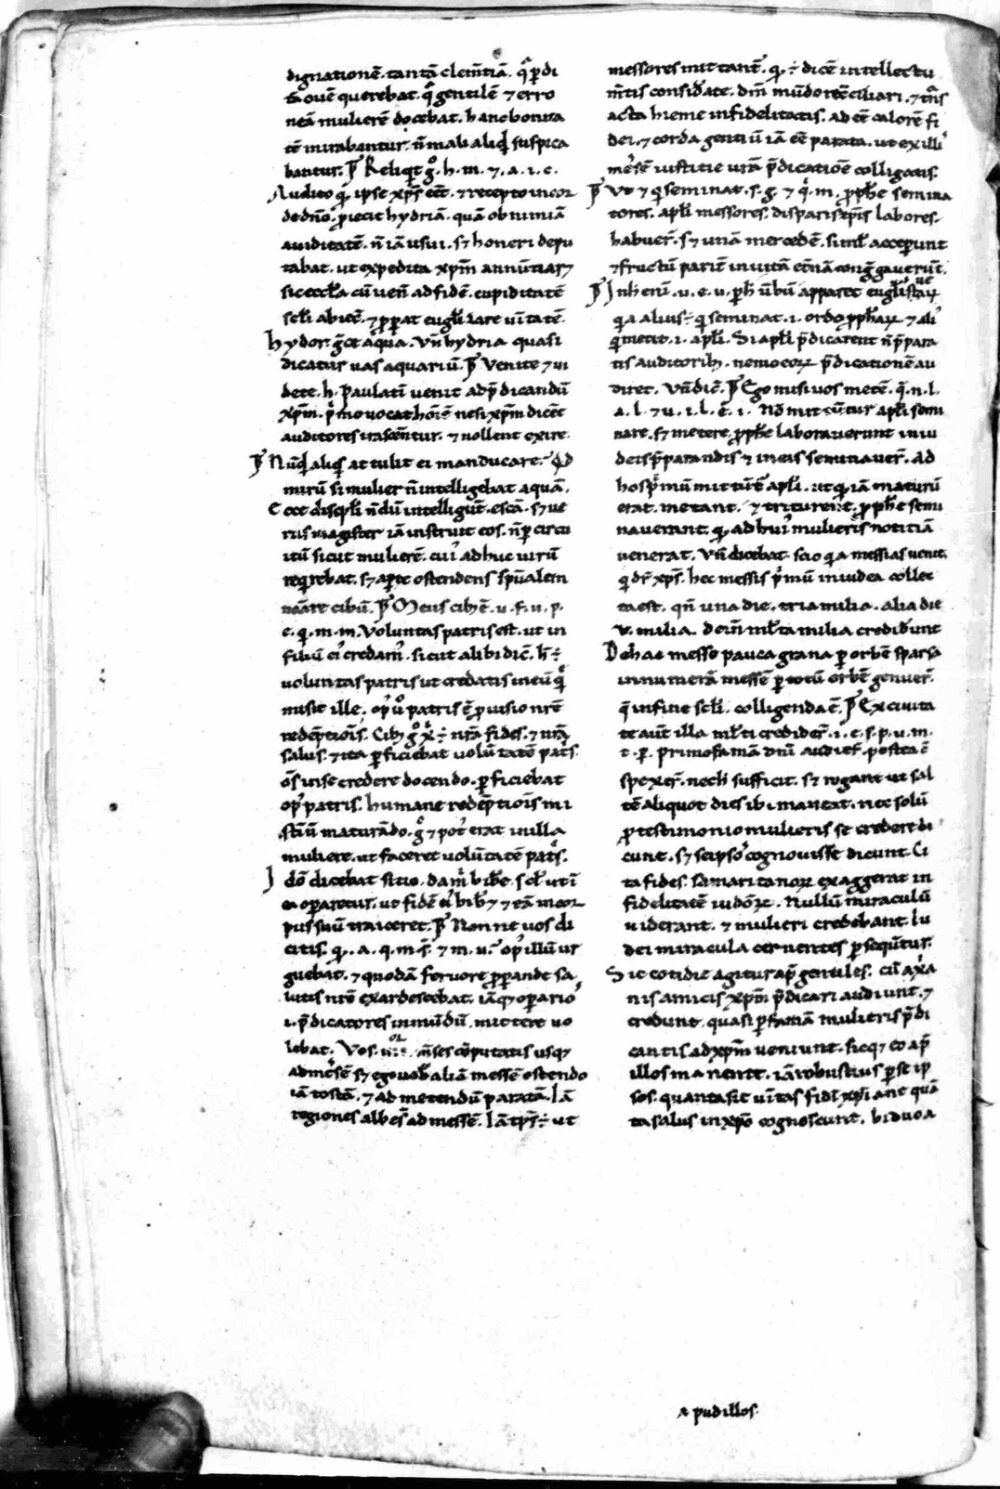 dignationē. tantā clem̄tiā. q̄ p̄di
tā ouē querebat. q̄ gentilē ⁊ erro
neā mulierē docebat. hanc bonita
tē mirabantur. n̄ mali aliqd suspica
bantur. Reliqt g̊. h. m. ⁊. a. i. c.
Audito q̄ ipse xp̄s eēt. ⁊ recepto in cor
de dn̄o. p̱iecit hydriā. quā ob nimiā
auiditatē. n̄ iā usui. s⁊ honeri depu
tabat. ut expedita xpm̄ annūtiar⁊
sic eccl̄a cū uen̄ ad fidē. cupiditatē
scl̄i abicē. ⁊ p̱perat eugl̄izare uitatē.
hydor. g̃ce aqua. Vn̄ hydria quasi
dicatur uas aquariū. Venite ⁊ ui
dete. h. paulatī uenit ad p̄dicandū
xpm̄. p̱mo uocat hōiē. ne si xpm̄ dicēt
auditores irascēntur. ⁊ nollent exire.
Nūqd aliqs attulit ei manducare. Qd
mirū si mulier n̄ intelligebat aquā.
Ecce discpl̄i n̄dū intelligūt. escā. s⁊ ue
rus magister iā instruit eos. n̄ p̱ circu
itū sicut mulierē. cui adhuc uirū
reqrebat. s⁊ ap̱te ostendens sp̄ualem
cibū. Meus cib; ē. u. f. u. p.
e. q. m. m. Voluntas patris est. ut in
filiū ei' credam'. sicut alibi dic̄. h̄ ÷
uoluntas patris ut credatis in eū q̄
misit ille. op' ů patris ē p̱uisio nrē
redēptiois. Cib; g̊ xi ÷ nrā fides. ⁊ nrā
salus. ⁊ ita p̱ficiebat uolūtatē pat̄s.
oēs in se credere docendo. p̱ficiebat
op' patris. humane redēptiois mi
steriū maturādo. g̊ ⁊ pot' erat in illa
muliere. ut faceret uolūtatē pat̄s.
Idō dicebat sitio. da m̄ bibe. scl̄ ut ī
ea operaretur. ut fidē ei' bib⁊ ⁊ eā in cor
pus suū traiceret. Nonne uos di
citis. q. a. q. m. s̄. ⁊ m. u. op' illū ur
guebat. ⁊ quodā feruore p̱perande sa
lutis nrē exardescebat. iāq; operario
.i. p̄dicatores in mūdū mittere uo
lebat. Vos. mēses cōputatis usq;
ad mēsē s⁊ ego uob̄ aliā messē ostendo
iā tostā. ⁊ ad metendū paratā. Iā
regiones albes̄ ad messē. Iā tp̄s ÷ ut
messores mittant̄. q. ÷ dicē intellectu
m̄tis considate. dm̄ mūdo recciliari. ⁊ trās
acta hieme infidelitatis. ad eē calorē fi
dei. ⁊ corda gentiū iā eē parata. ut ex illi'
mēsē iustitie urā p̄dicatioē colligatis.
Vt ⁊ q seminat. s. g. ⁊ q. m. p̱phe semina
tores. apl̄i messores. dispari tēpis labores.
habuer̄. s⁊ unā mercedē. simł acceperunt
⁊ fructū parit̄ in uitā et̄nā congggauerūt.
In h enī. u. e. u. p̱ h ūbū apparet eugl̄istarum
q̱ alius ÷ q seminat .i. ordo p̱phar; ⁊ ali'
q metit .i. apl̄i. Si apl̄i p̄dicarent n̄ p̄para
tis auditorib;. nemo eor; p̄dicationē au
diret. Vn̄ dic̄. Ego misi uos metē. q̄. n. l.
a. l. ⁊ u. i. l. ē. i. Nō mittūtur apl̄i semi
nare. s⁊ metere. p̱phe laborauerunt in iu
deis p̄parandis ⁊ in eis seminauer̄. ad
hos p̱mū mittūt̄ apl̄i. ut q iā maturū
erat. metant. ⁊ triturent. p̱phe semi
nauerant. q. ad hui' mulieris notitiā
uenerat. Vn̄ dicebat. scio qa messias uenit.
q dr̄ xp̄s. hec messis p̱mū in iudea collec
ta est. qn̄ una die. tria milia. alia die
.v. milia. deīn mlta milia crediderunt
De hac messe pauca grana p̱ orbē sparsa
innumerā messē p̱ totū orbē genuer̄.
q̄ in fine scl̄i. colligenda ē. Ex ciuita
te aut̄ illa mlti credider̄. i. e. s. p. u. m.
t. p. Primo famā dn̄i audier̄. postea ē
spexer̄. nec h sufficit. s⁊ rogant ut sal
tē aliquot dies ibi maneat. nec solū
p̱ testimonio mulieris se credere di
cunt. s⁊ se ipso' cognouisse dicunt. Ci
ta fides. samaritanor; exaggerat in
fidelitatē iudōr;. Nullū miraculū
uiderant. ⁊ mulieri credebant. Iu
dei miracula cernentes p̱sequūtur.
Sic cotidie agitur ap̄ gentiles. cū a xp̱ia
nis amicis xpm̄ p̄dicari audiunt. ⁊
credunt. quasi p̱ famā mulieris p̄di
cantis ad xpm̄ ueniunt. sicq; eo ap̄
illos manente. iā robustius p̱ se ip
sos. quanta sit uitas fidei xp̄i ane quā
ta salus in xp̄o cognoscunt. biduo a
apud illos.